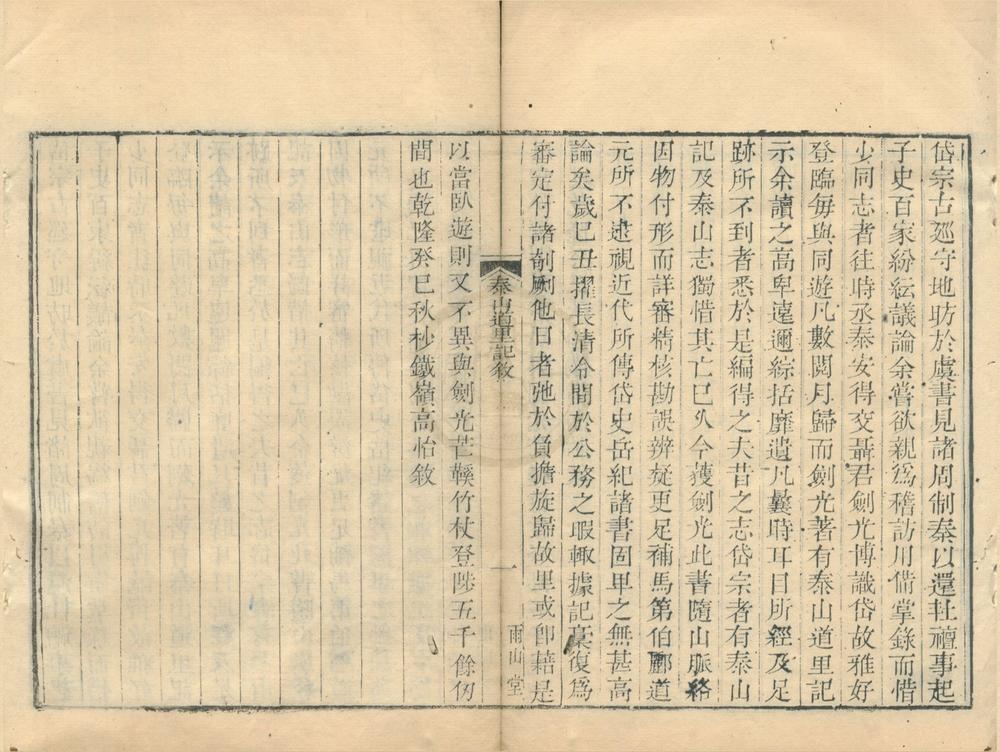 岱宗古廵守地昉於虞書見諸周制秦以還封禪事起
子史百家紛紜議論余嘗欲親爲稽訪用備掌錄而惜
少同志者往時丞泰安得交聶君劍光博識岱故雅好
登臨每與同遊凡數閱月歸而劍光著有泰山道里記
示余讀之高卑遠邇綜括靡遺凡曩時耳目所經及足
跡所不到者悉於是編得之夫昔之志岱宗者有泰山
記及泰山志獨惜其亡已久今獲劍光此書隨山脈絡
因物付形而詳審精核勘誤辨疑更足補馬第伯酈道
元所不逮視近代所傳岱史岳紀諸書固卑之無甚高
論矣歲己丑擢長清令間於公務之暇輙據記稾復爲
審定付諸剞劂他日者弛於負擔旋歸故里或卽藉是
泰山道里記敘
一
雨山堂
以當臥遊則又不異與劍光芒鞵竹杖登陟五千餘仞
間也乾隆癸巳秋杪鐵嶺高怡敘